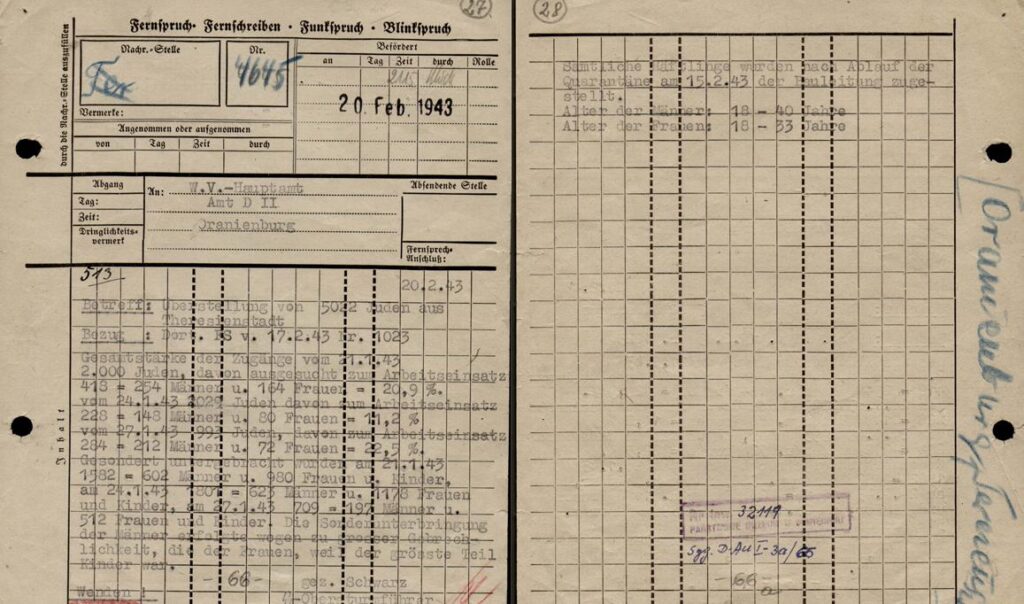 27
Fernspruch- Fernschreiben - Funkspruch - Blinkspruch
durch die Nachr.-Stelle auszufüllen
Nachr.-Stelle
Nr.
4645
Vermerke:
Befördert
an Tag Zeit durch Rolle
20. Feb. 1943
Angenommen oder aufgenommen
von Tag Zeit durch
Abgang
Tag:
Zeit:
Dringlichkeits-
vermerk
An: W.V.-Hauptamt
Amt D II
Oranienburg
Absendende Stelle
Fernsprech-
Anschluß:
Inhalt
513
20.2.43
Betreff: Überstellung von 5022 Juden aus
Theresienstadt
Bezug : Dort. FS v. 17.2.43 Nr. 1023
Gesamtstärke der Zugänge vom 21.1.43
2.000 Juden, davon ausgesucht zum Arbeitseinsatz
418 = 254 Männer u. 164 Frauen = 20,9 %.
vom 24.1.43 2029 Juden davon zum Arbeitseinsatz
228 = 148 Männer u. 80 Frauen = 11,2 %
vom 27.1.43 993 Juden, davon zum Arbeitseinsatz
284 = 212 Männer u. 72 Frauen = 22,5 %.
Gesondert untergebracht wurden am 21.1.43
1582 = 602 Männer u. 980 Frauen u. Kinder,
am 24.1.43 1801 = 623 Männer u. 1178 Frauen
und Kinder, am 27.1.43 709 = 197 Männer u.
512 Frauen und Kinder. Die Sonderunterbringung
der Männer erfolgte wegen zu grosser Gebrech-
lichkeit, die der Frauen, weil der grösste Teil
Kinder war.
- 66 - gez. Schwarz
Wenden ! Obersturmführer
28
Sämtliche Häftlinge wurden nach Ablauf der
Quarantäne am 15.2.43 der Bauleitung zuge-
stellt.
Alter der Männer: 18 - 40 Jahre
Alter der Frauen: 18 - 33 Jahre
32119
Syg. D-Au I-3a/65
- 66 -
a